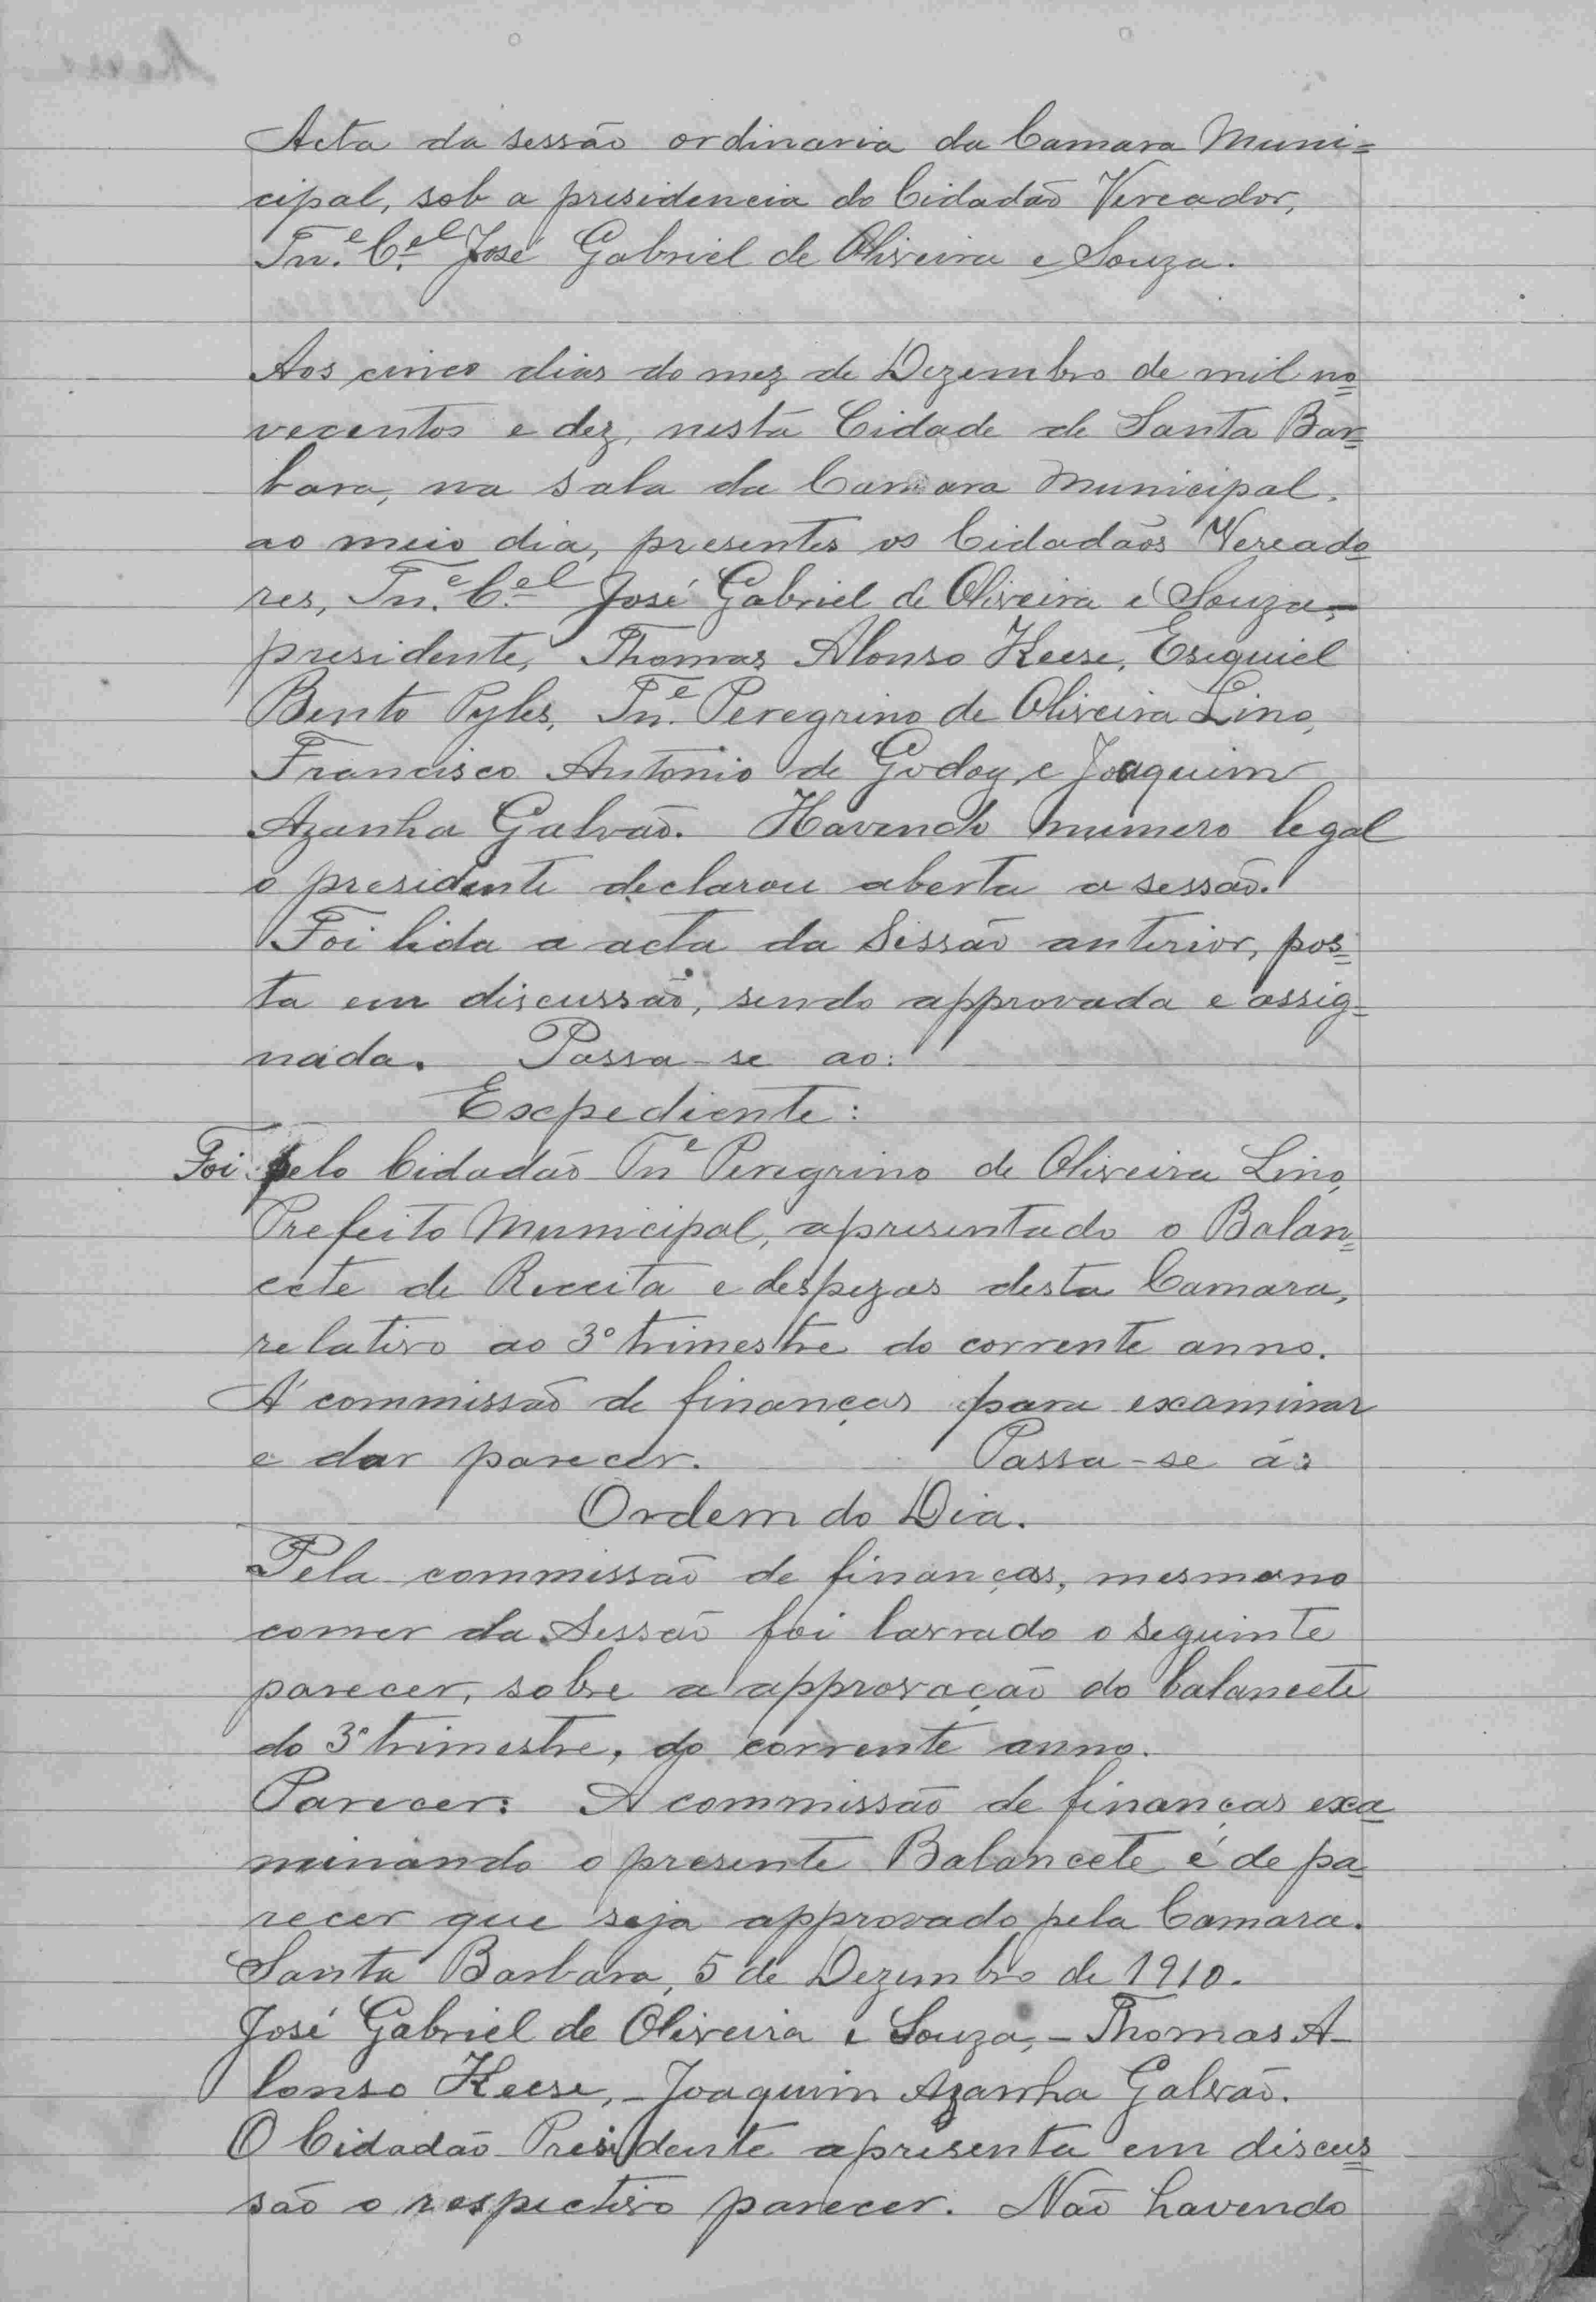 Acta da sessão ordinaria da Camara Muni=
cipal, sob a presidencia do Cidadão Vereador,
Tn.e C.el José Gabriel de Oliveira e Souza.
Aos cinco dias do mez de Dezembro de mil no=
vecentos e dez, nesta Cidade de Santa Bar=
bara, na sala da Camara Municipal,
ao meio dia, presentes os Cidadãos Vereado=
res, Tn.e C.el José Gabriel de Oliveira e Souza,-
presidente, Thomas Alonso Keese, Esequiel
Bento Pyles, Tn.e Peregrino de Oliveira Lino,
Francisco Antonio de Godoy, e Joaquim
Azanha Galvão. Havendo numero legal
o presidente declarou aberta a sessão.
Foi lida a acta da Sessão anterior, pos=
ta em discussão, sendo approvada e assig=
nada. Passa-se ao:
Expediente:
Foi pelo Cidadão Tn.e Peregrino de Oliveira Lino,
Prefeito Municipal, apresentado o Balan=
cete de Receita e despezas desta Camara,
relativo ao 3º trimestre do corrente anno.
A' commissão de finanças para examinar
e dar parecer. Passa-se á:
Ordem do Dia.
Pela commissão de finanças, mesmo no
correr da Sessão foi lavrado o seguinte
parecer, sobre a approvação do balancete
do 3º trimestre, do corrente anno.
Parecer: A commissão de finanças exa=
minando o presente Balancete é de pa=
recer que seja approvado pela Camara.
Santa Barbara, 5 de Dezembro de 1910.
José Gabriel de Oliveira e Souza,- Thomas A-
lonso Keese,- Joaquim Azanha Galvão.
O Cidadão Presidente apresenta em discus=
são o respectivo parecer. Não havendo